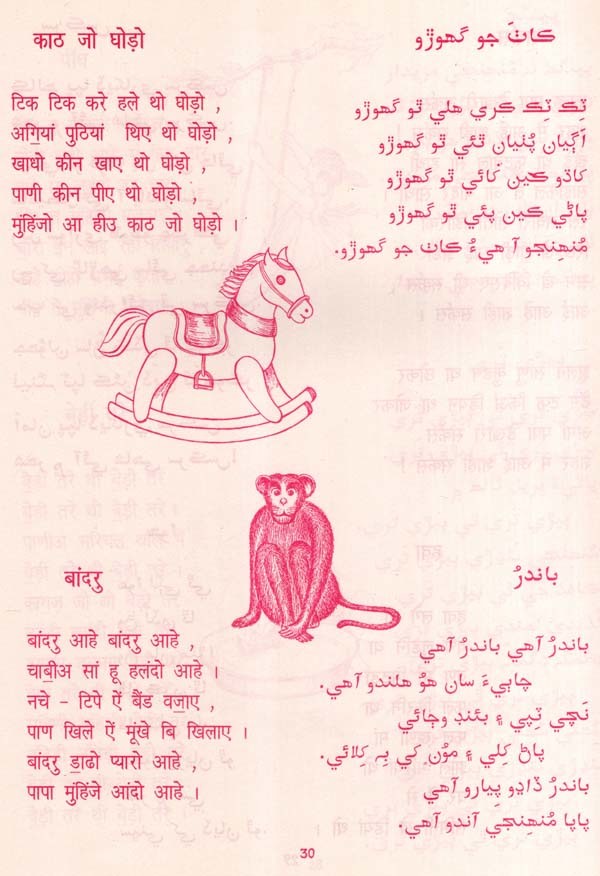 काठ जो घोड़ो
ڪاٺَ جو گهوڙو
टिक टिक करे हले थो घोड़ो ,
अॻियां पुठियां थिए थो घोड़ो ,
खाधो कीन खाए थो घोड़ो ,
पाणी कीन पीए थो घोड़ो ,
मुंहिंजो आ हीउ काठ जो घोड़ो ।
ٽِڪ ٽِڪ ڪري هلي ٿو گهوڙو
اَڳيان پُٺيان ٿئي ٿو گهوڙو
کاڌو ڪين کائي ٿو گهوڙو
پاڻي ڪين پئي ٿو گهوڙو
مُنهنِجو آ هيءُ ڪاٺ جو گهوڙو.
बांदरु
باندرُ
बांदरु आहे बांदरु आहे ,
चाॿीअ सां हू हलंदो आहे ।
नचे - टिपे ऐं बैंड वॼाए ,
पाण खिले ऐं मूंखे बि खिलाए ।
बांदरु ॾाढो प्यारो आहे ,
पापा मुंहिंजे आंदो आहे ।
باندرُ آهي باندرُ آهي
چاٻيءَ سان هوُ هلندو آهي.
نَچي ٽِپي ۽ بئنڊ وڄائي
پاڻ کِلي ۽ موُن کي بہ کِلائي.
باندرُ ڏاڍو پِيارو آهي
پاپا مُنهنِجي آندو آهي.
30